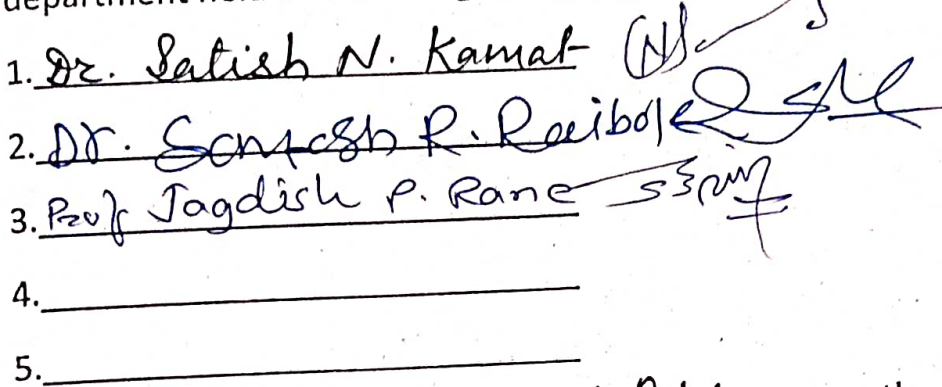 department
1. Dr. Satish N. Kamat
2. Dr. Santosh R. Raibole
3. Prof Jagdish P. Rane
4.
5.